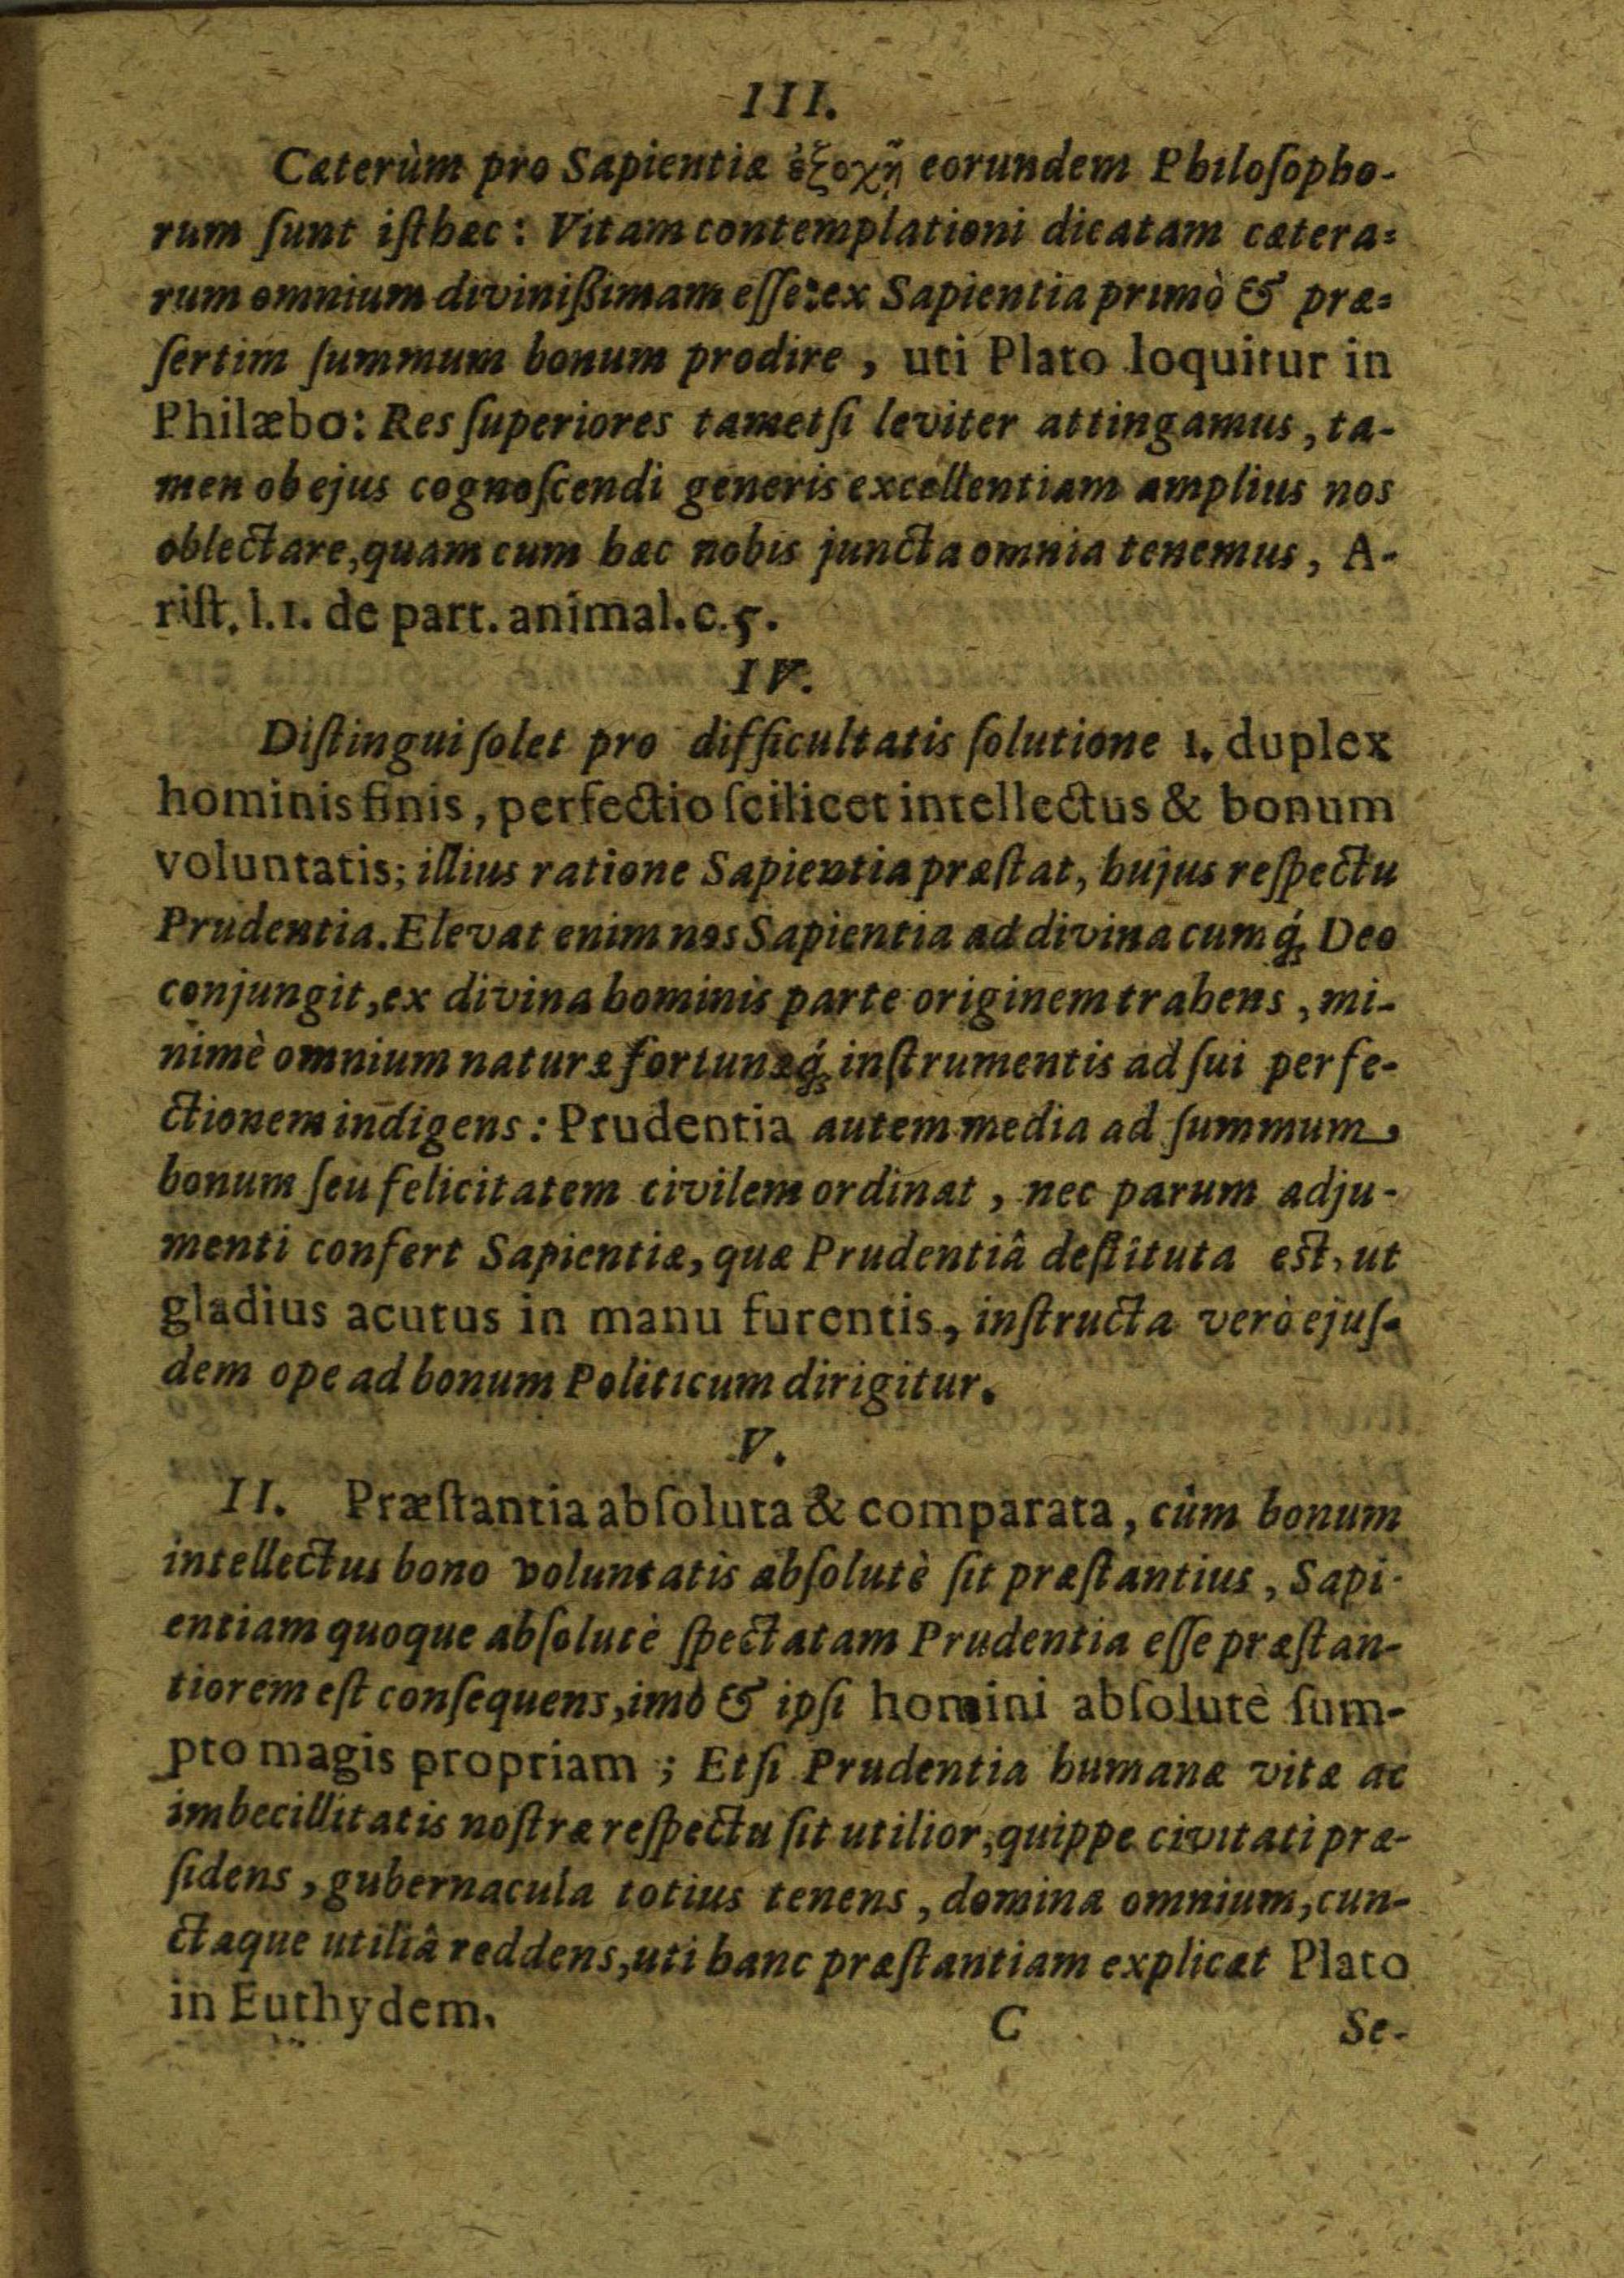 III.
Cæterùm pro Sapientiæ ἐξοχῇ eorundem Philoſopho-
rum ſunt iſthæc: Vitam contemplationi dicatam cætera-
rum omnium diviniſsimam eſſe: ex Sapientia primò & præ-
ſertim ſummum bonum prodire, uti Plato loquitur in
Philæbo: Res ſuperiores tametſi leviter attingamus, ta-
men ob ejus cognoſcendi generis excellentiam amplius nos
oblectare, quam cum hæc nobis juncta omnia tenemus, A-
riſt. l. 1. de part. animal. c. 5.
IV.
Diſtingui ſolet pro difficultatis ſolutione 1. duplex
hominis finis, perfectio ſcilicet intellectus & bonum
voluntatis; illius ratione Sapientia præſtat, hujus reſpectu
Prudentia. Elevat enim nos Sapientia ad divina cumq́; Deo
conjungit, ex divina hominis parte originem trahens, mi-
nimè omnium naturæ fortunæq́; inſtrumentis ad ſui perfe-
ctionem indigens: Prudentia autem media ad ſummum
bonum ſeu felicitatem civilem ordinat, nec parum adju-
menti confert Sapientiæ, quæ Prudentiâ deſtituta eſt, ut
gladius acutus in manu furentis, inſtructa verò ejuſ-
dem ope ad bonum Politicum dirigitur.
V.
II. Præſtantia abſoluta & comparata, cùm bonum
intellectus bono voluntatis abſolutè ſit præſtantius, Sapi-
entiam quoque abſolutè ſpectatam Prudentia eſſe præſtan-
tiorem eſt conſequens, imò & ipſi homini abſolutè ſum-
pto magis propriam; Etſi Prudentia humanæ vitæ ac
imbecillitatis noſtræ reſpectu ſit utilior, quippe civitati præ-
ſidens, gubernacula totius tenens, domina omnium, cun-
ctaque utiliâ reddens, uti hanc præſtantiam explicat Plato
in Euthydem.
C Se-